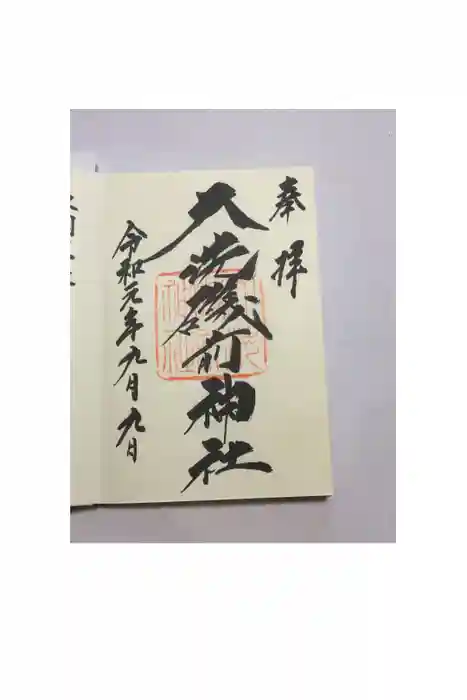 奉拝
大洗磯前神社
令和元年九月九日